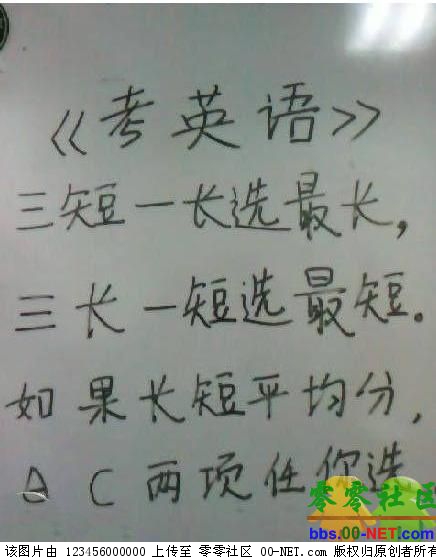 《考英语》
三短一长选最长,
三长一短选最短.
如果长短平均分,
C 两项任你选
零零社区
bbs.00-NET.com
该图片由 123456000000 上传至 零零社区 00-NET.com 版权归原创者所有